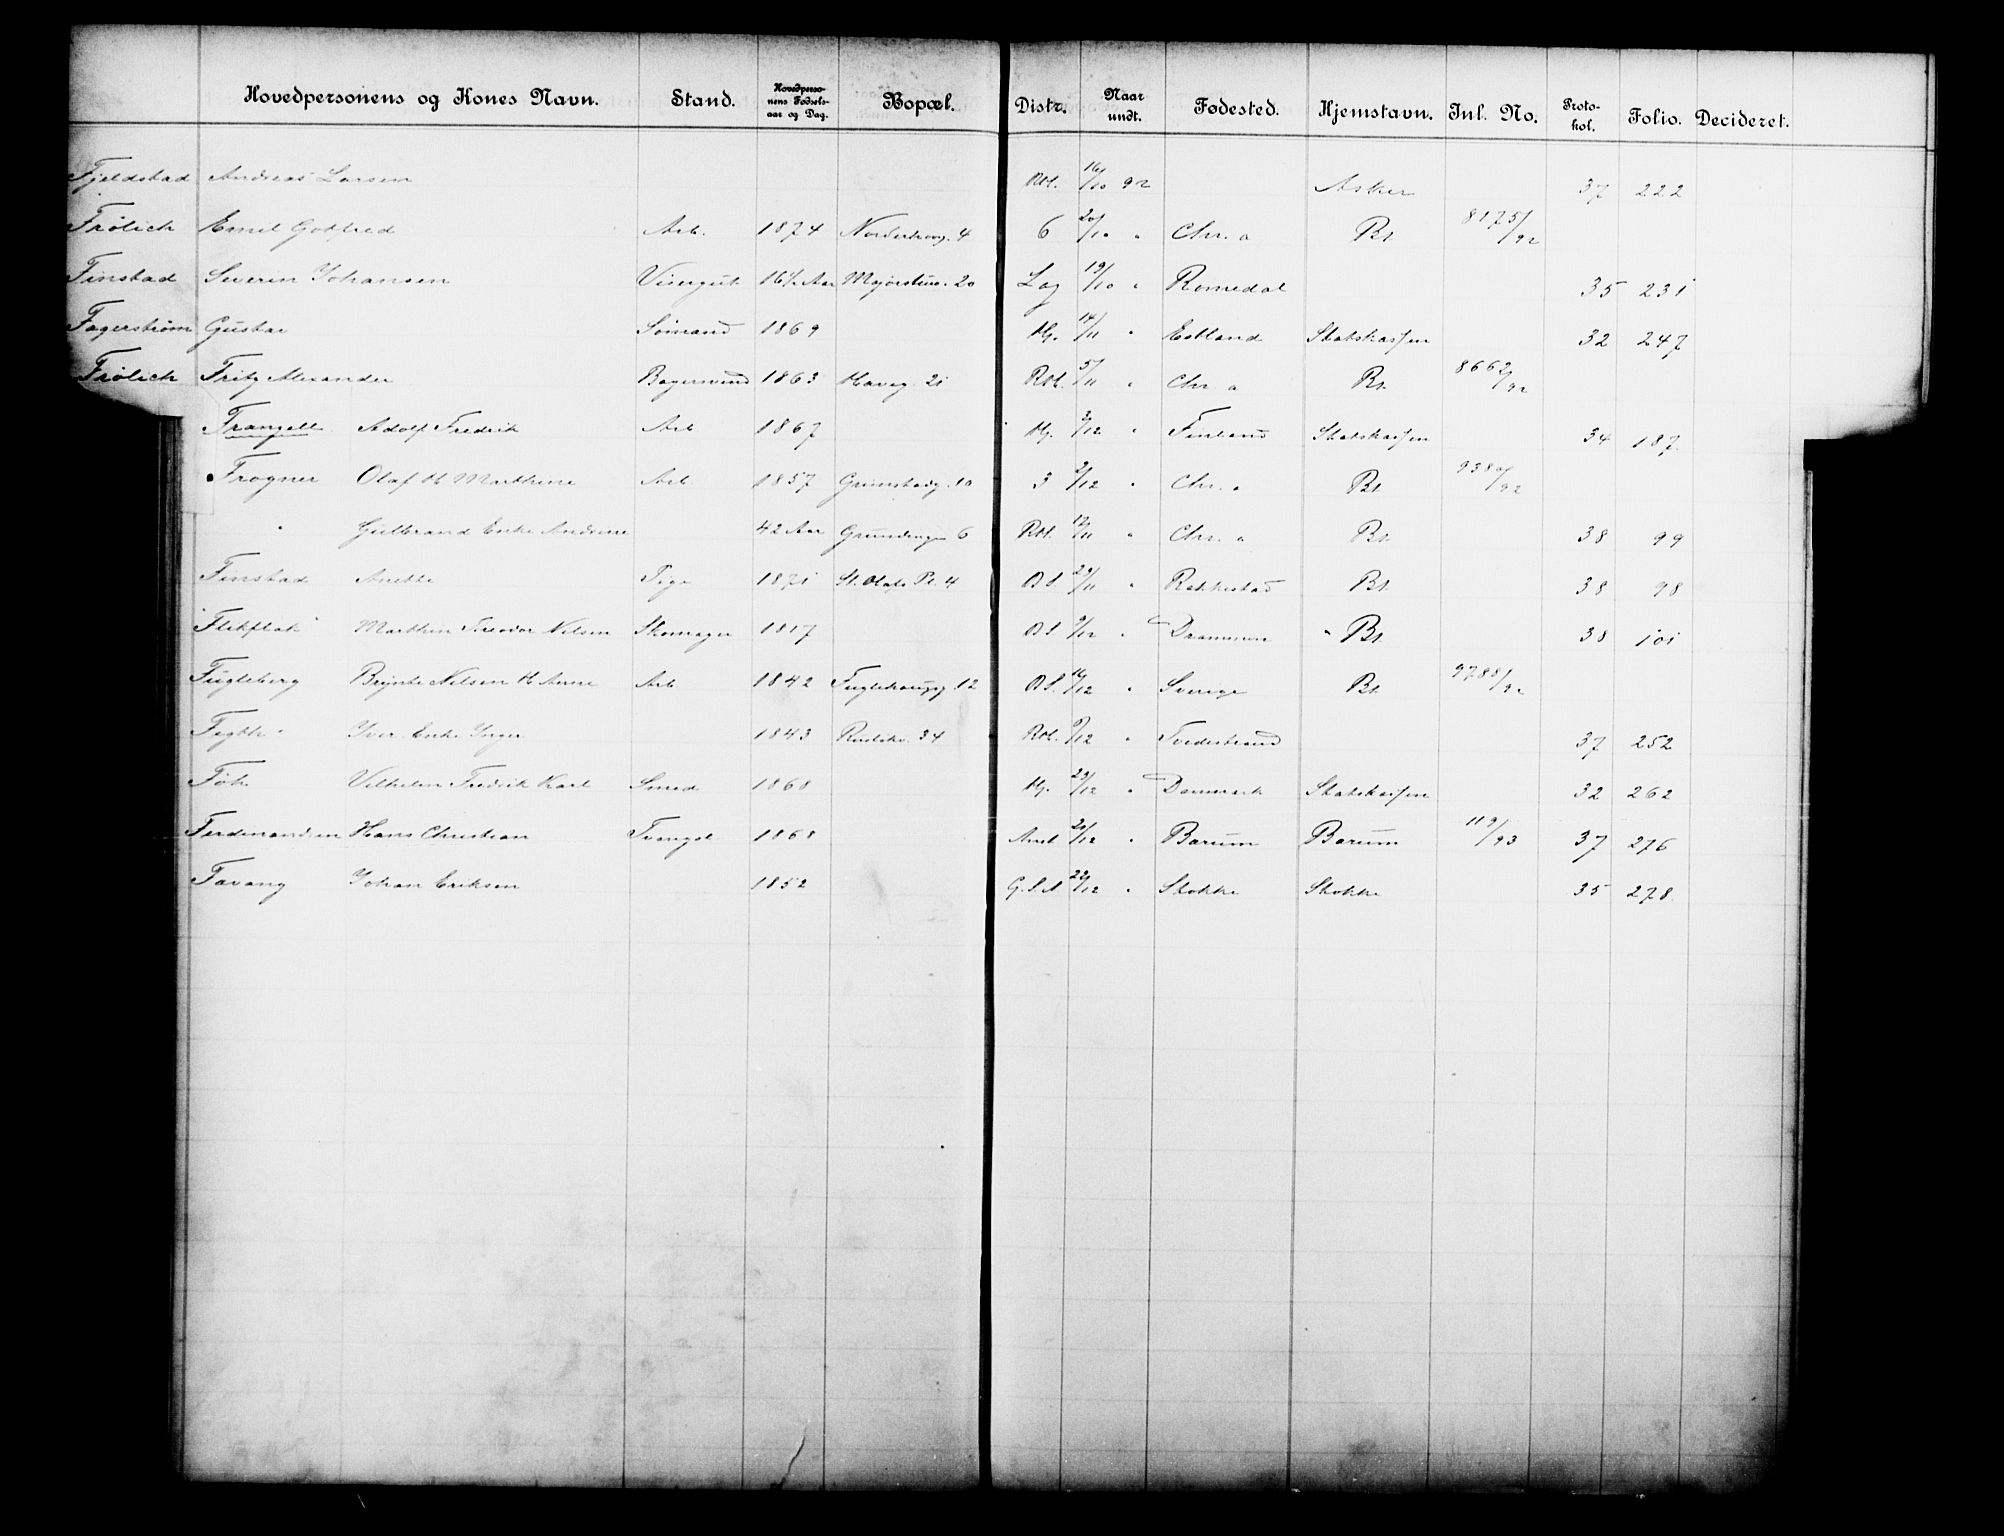 Hovedpersonens og Kones Navn. Stand. Hovedperso-nens Fødsels-aar og Dag. Bopæl. Distr. Naar undt. Fødested. Hjemstavn. Inl. No. Proto-kol. Folio. Decideret.
Fjeldstad Andreas Larsen Rtl. 16/10 92 Asker 37 222
Frølich Emil Godfred Arb. 1874 4 6 20/10 " Chr. a Bt. 8175/92
Finstad Severin Johansen Visergut 16½ Aar Majorstuv. 20 Lag 19/10 " Romedal 35 231
Fagerstrøm Gustav Sømand 1869 Hg. 14/11 " Estland Statskassen 32 247
Frølich Fritz Alexander Bagersvend 1863 Haveg. 21 Rtl. 5/11 " Chr. a Bt. 8662/92
Frangell Adolf Fredrik Arb 1867 Hg. 3/12 " Finland Statskassen 34 187
Frogner Olaf H Marthine Arb. 1857 Grimstadg. 10 3 2/12 " Chr. a Bt. /92
" Gulbrand Enke Andrine 42 Aar Gründingen 6 Rtl. 12/11 " Chr. a Bt. 38 99
Finstad Anette Pige 1871 St. Olafs Pl. 4 O S. 29/11 " Rakkestad Bt. 38 98
"Flikflak" Marthin Theodor Nilsen Skomager 1817 O S. 9/12 " Drammen " Bt. 38 101
Fugleberg Brynte Nilsen H Anne Arb 1842 Fuglehaugg. 12 O S. 16/12 " Sverige Bt. 9788/92
Iver. Enke Inger 1843 Rudskv. 34 Rtl. 9/12 " Tvedestrand 37 252
Vilhelm Fredrik Karl Smed 1868 Hg. 23/12 " Danmark Statskassen 32 262
Ferdinandsen Hans Christian Tvangsl. 1868 21/12 " Barum Barum 119/93 37 276
Favang Johan Eriksen 1852 22/12 " Stokke Stokke 35 278.